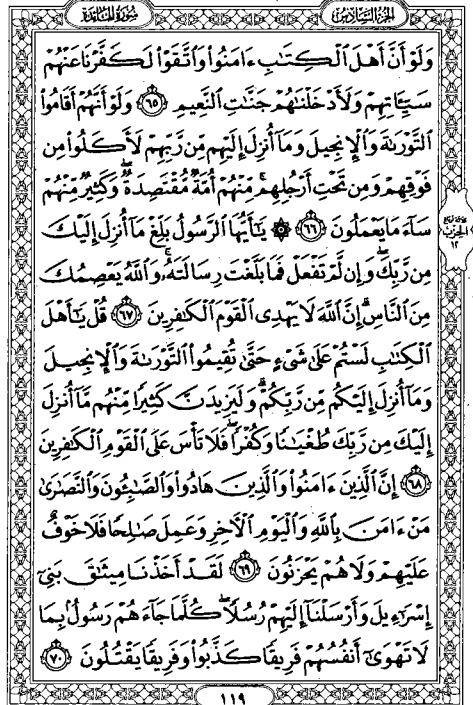 سُورَةُ المَائِدَةِ
الجُزءُ السَّادِسُ
وَلَوْ أَنَّ أَهْلَ ٱلْكِتَٰبِ ءَامَنُوا۟ وَٱتَّقَوْا۟ لَكَفَّرْنَا عَنْهُمْ
سَيِّـَٔاتِهِمْ وَلَأَدْخَلْنَٰهُمْ جَنَّٰتِ ٱلنَّعِيمِ ٦٥ وَلَوْ أَنَّهُمْ أَقَامُوا۟
ٱلتَّوْرَىٰةَ وَٱلْإِنجِيلَ وَمَآ أُنزِلَ إِلَيْهِم مِّن رَّبِّهِمْ لَأَكَلُوا۟ مِن
فَوْقِهِمْ وَمِن تَحْتِ أَرْجُلِهِم ۚ مِّنْهُمْ أُمَّةٌ مُّقْتَصِدَةٌ ۖ وَكَثِيرٌ مِّنْهُمْ
سَآءَ مَا يَعْمَلُونَ ٦٦ ۞ يَٰٓأَيُّهَا ٱلرَّسُولُ بَلِّغْ مَآ أُنزِلَ إِلَيْكَ
مِن رَّبِّكَ ۖ وَإِن لَّمْ تَفْعَلْ فَمَا بَلَّغْتَ رِسَالَتَهُۥ ۚ وَٱللَّهُ يَعْصِمُكَ
مِنَ ٱلنَّاسِ ۗ إِنَّ ٱللَّهَ لَا يَهْدِى ٱلْقَوْمَ ٱلْكَٰفِرِينَ ٦٧ قُلْ يَٰٓأَهْلَ
ٱلْكِتَٰبِ لَسْتُمْ عَلَىٰ شَىْءٍ حَتَّىٰ تُقِيمُوا۟ ٱلتَّوْرَىٰةَ وَٱلْإِنجِيلَ
وَمَآ أُنزِلَ إِلَيْكُم مِّن رَّبِّكُمْ ۗ وَلَيَزِيدَنَّ كَثِيرًا مِّنْهُم مَّآ أُنزِلَ
إِلَيْكَ مِن رَّبِّكَ طُغْيَٰنًا وَكُفْرًا ۖ فَلَا تَأْسَ عَلَى ٱلْقَوْمِ ٱلْكَٰفِرِينَ
٦٨ إِنَّ ٱلَّذِينَ ءَامَنُوا۟ وَٱلَّذِينَ هَادُوا۟ وَٱلصَّٰبِـُٔونَ وَٱلنَّصَٰرَىٰ
مَنْ ءَامَنَ بِٱللَّهِ وَٱلْيَوْمِ ٱلْءَاخِرِ وَعَمِلَ صَٰلِحًا فَلَا خَوْفٌ
عَلَيْهِمْ وَلَا هُمْ يَحْزَنُونَ ٦٩ لَقَدْ أَخَذْنَا مِيثَٰقَ بَنِىٓ
إِسْرَٰٓءِيلَ وَأَرْسَلْنَآ إِلَيْهِمْ رُسُلًا ۖ كُلَّمَا جَآءَهُمْ رَسُولٌۢ بِمَا
لَا تَهْوَىٰٓ أَنفُسُهُمْ فَرِيقًا كَذَّبُوا۟ وَفَرِيقًا يَقْتُلُونَ ٧٠
الحزب
١٢
١١٩